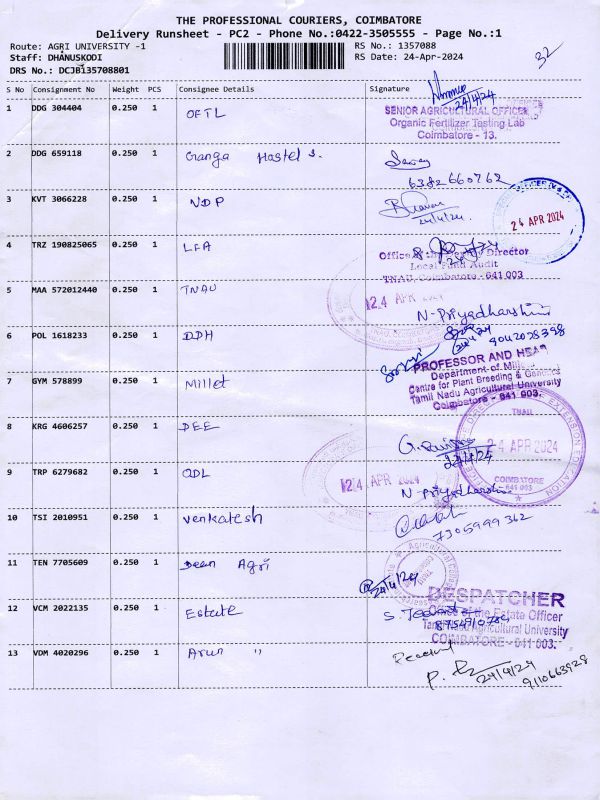 THE PROFESSIONAL COURIERS, COIMBATORE
Delivery Runsheet - PC2 - Phone No.:0422-3505555 - Page No.:1
Route: AGRI UNIVERSITY -1
RS No.: 1357088
Staff: DHANUSKODI
RS Date: 24-Apr-2024
DRS No.: DCJB135708801
32
S No Consignment No Weight PCS Consignee Details Signature
1 DDG 304404 0.250 1 OFTL
24/4/24
SENIOR AGRICULTURAL OFFICER
Organic Fertilizer Testing Lab
Coimbatore - 13.
2 DDG 659118 0.250 1 Ganga Hostel s.
6382660762
3 KVT 3066228 0.250 1 NDP
24/4/24.
24 APR 2024
4 TRZ 190825065 0.250 1 LFA
Director
Local Fund Audit
TNAU, Coimbatore - 641 003
5 MAA 572012440 0.250 1 TNAU
24 APR 2024
N-Priyadharshini
6 POL 1618233 0.250 1 DPH
24/4/24
PROFESSOR AND HEAD
Department of Millets
Centre for Plant Breeding & Genetics
Tamil Nadu Agricultural University
Coimbatore - 641 003.
7 GYM 578899 0.250 1 Millet
8 KRG 4606257 0.250 1 DEE
TNAU
24 APR 2024
COIMBATORE
641 003
EXTENSION EDUCATION
9 TRP 6279682 0.250 1 ODL
24 APR 2024
N-Priyadharshini
10 TSI 2010951 0.250 1 Venkatesh
7305999362
11 TEN 7705609 0.250 1 Dean Agri
24/4/24
12 VCM 2022135 0.250 1 Estate
DESPATCHER
Office of the Estate Officer
Tamil Nadu Agricultural University
COIMBATORE - 641 003.
13 VDM 4020296 0.250 1 Arun "
Received
24/4/24
9110663928